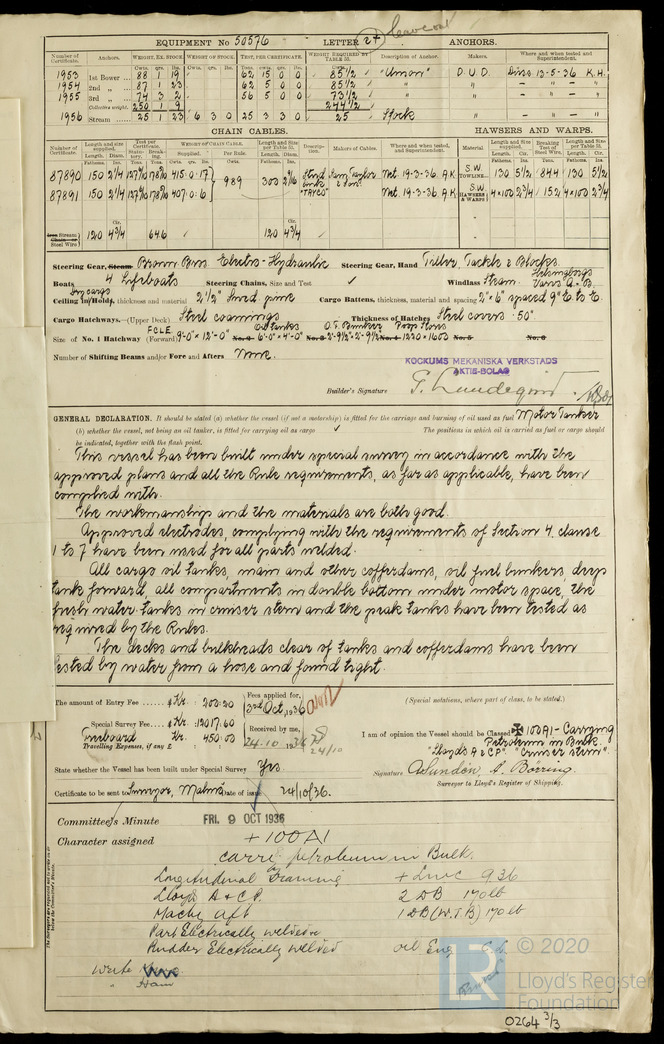 EQUIPMENT No 50576 LETTER 2† ANCHORS.
Number of Certificate. Anchors. WEIGHT, EX. STOCK WEIGHT OF STOCK. TEST, PER CERTIFICATE. WEIGHT REQUIRED BY TABLE 53. Description of Anchor. Makers. Where and when tested and Superintendent.
1953 1st Bower ... 88 1 19 62 15 0 0 85½ "Union" D.U.D. 13-5-36 K.H.
1954 2nd „ ... 87 1 23 62 5 0 0 85½ " " " "
1955 3rd „ ... 74 3 2 56 5 0 0 73½ " " " "
Collective weight. 250 1 9 244½
1956 Stream 25 1 23 6 3 0 25 3 3 0 25 Stock " " "
CHAIN CABLES. HAWSERS AND WARPS.
87890 150 2¼ 127 178 415.0.17 989 300 2 Sam Taylor & Son. Net. 19-3-36 A.K. S.W. TOWLINE 130 5½ 844 130 5½
87891 150 2¼ 127 178 407.0.6 "TAYCO" Net. 19-3-36 A.K. S.W. HAWSERS & WARPS 4×100 2¾ 152 4×100 2¾
Steel Wire 120 4¾ 646 120 4¾
Steering Gear, Steam Brown Bros Electro-Hydraulic Steering Gear, Hand Tiller, Tackle & Blocks
Boats 4 Lifeboats Steering Chains, Size and Test ✓ Windlass Steam. Helsingborgs Varvs A.-B.
Ceiling in Holds, thickness and material 2½" Swed. pine Cargo Battens, thickness, material and spacing 2"×6" spaced 9" C. to C.
Cargo Hatchways.—(Upper Deck) Steel coamings Thickness of Hatches Steel covers .50"
Size of No. 1 Hatchway (Forward) FCLE 9'-0" × 12'-0" No. 2 Oil tanks 6'-0" × 4'-0" No. 3 O.F. Bunker 2'-9½" × 2'-9½" No. 4 Poop Stores 1220 × 1600 No. 5 No. 6
Number of Shifting Beams and/or Fore and Afters None.
KOCKUMS MEKANISKA VERKSTADS
AKTIE-BOLAG
Builder's Signature
GENERAL DECLARATION. It should be stated (a) whether the vessel (if not a motorship) is fitted for the carriage and burning of oil used as fuel Motor Tanker
(b) whether the vessel, not being an oil tanker, is fitted for carrying oil as cargo ✓ The positions in which oil is carried as fuel or cargo should
be indicated, together with the flash point.
This vessel has been built under special survey in accordance with the
approved plans and all the Rule requirements, as far as applicable, have been
complied with.
The workmanship and the materials are both good.
Approved electrodes, complying with the requirements of Section 4, clause
1 to 7 have been used for all parts welded.
All cargo oil tanks, main and other cofferdams, oil fuel bunkers, deep
tank forward, all compartments in double bottom under motor space, the
fresh water tanks in cruiser stern and the peak tanks have been tested as
required by the Rules.
The decks and bulkheads clear of tanks and cofferdams have been
tested by water from a hose and found tight.
The amount of Entry Fee ...... Kr. : 200.20 Fees applied for, 2nd Oct, 1936 (Special notations, where part of class, to be stated.)
Special Survey Fee ... Kr. : 12017.60 Received by me, I am of opinion the Vessel should be Classed ✠ 100A1- Carrying
Freeboard Kr. 450.00 24-10 1936 24/10 Petroleum in Bulk.
Travelling Expenses, if any £ "Lloyd's A & CP." "Cruiser stern".
State whether the Vessel has been built under Special Survey Yes Signature A Sundén, A. Börring.
Surveyor to Lloyd's Register of Shipping.
Certificate to be sent to Surveyor, Malmö Date of issue 24/10/36.
Committee's Minute FRI. 9 OCT 1936
Character assigned +100A1
Carrg petroleum in Bulk.
Longitudinal Framing + LMC 9.36
Lloyds A & C.P. 2 DB 170 lb
Machy Aft 1 DB (W.T.B) 170 lb
Part Electrically welded
Rudder Electrically Welded oil Eng
Write
" Ham
© 2020
LR Lloyd's Register
Foundation
0264 3/3